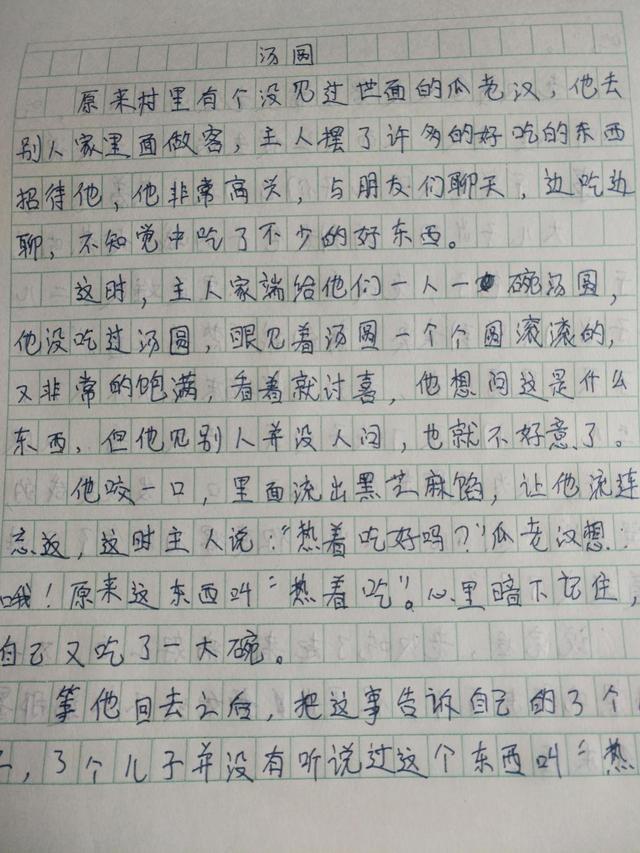 汤圆
原来村里有个没见过世面的瓜老汉，他去
别人家里面做客，主人摆了许多的好吃的东西
招待他，他非常高兴，与朋友们聊天，边吃边
聊，不知觉中吃了不少的好东西。
这时，主人家端给他们一人一碗汤圆，
他没吃过汤圆，眼见着汤圆一个个圆滚滚的，
又非常的饱满，看着就讨喜，他想问这是什么
东西，但他见别人并没人问，也就不好意了。
他咬一口，里面流出黑芝麻馅，让他流连
忘返，这时主人说："热着吃好吗？"瓜老汉想：
哦！原来这东西叫"热着吃"。心里暗下记住，
自己又吃了一大碗。
等他回去之后，把这事告诉自己的3个
，3个儿子并没有听说过这个东西叫"热